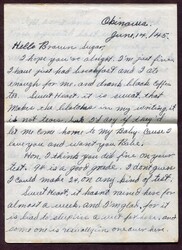 Okinawa.
June, 14, /45.
Hello Brown Sugar,
I hope you're always. I'm just fine.
I have just had breakfast and I ate
enough for me, and drank black coffee
Sweet Heart, it is sweat that
Make the blotches in my writing it
is not tears but I may if they
let me come home to my Baby cause I
love you and want you Babe.
Hon, I think you did fine on your
test. 90 is a good grade. I don't guess
I could make 20, on any kind of test.
Sweet Heart, it hasn't rained here for
almost a week, and I'm glad, for it
is bad to sleep in a wet fox hole, and
some one is usually in one over here